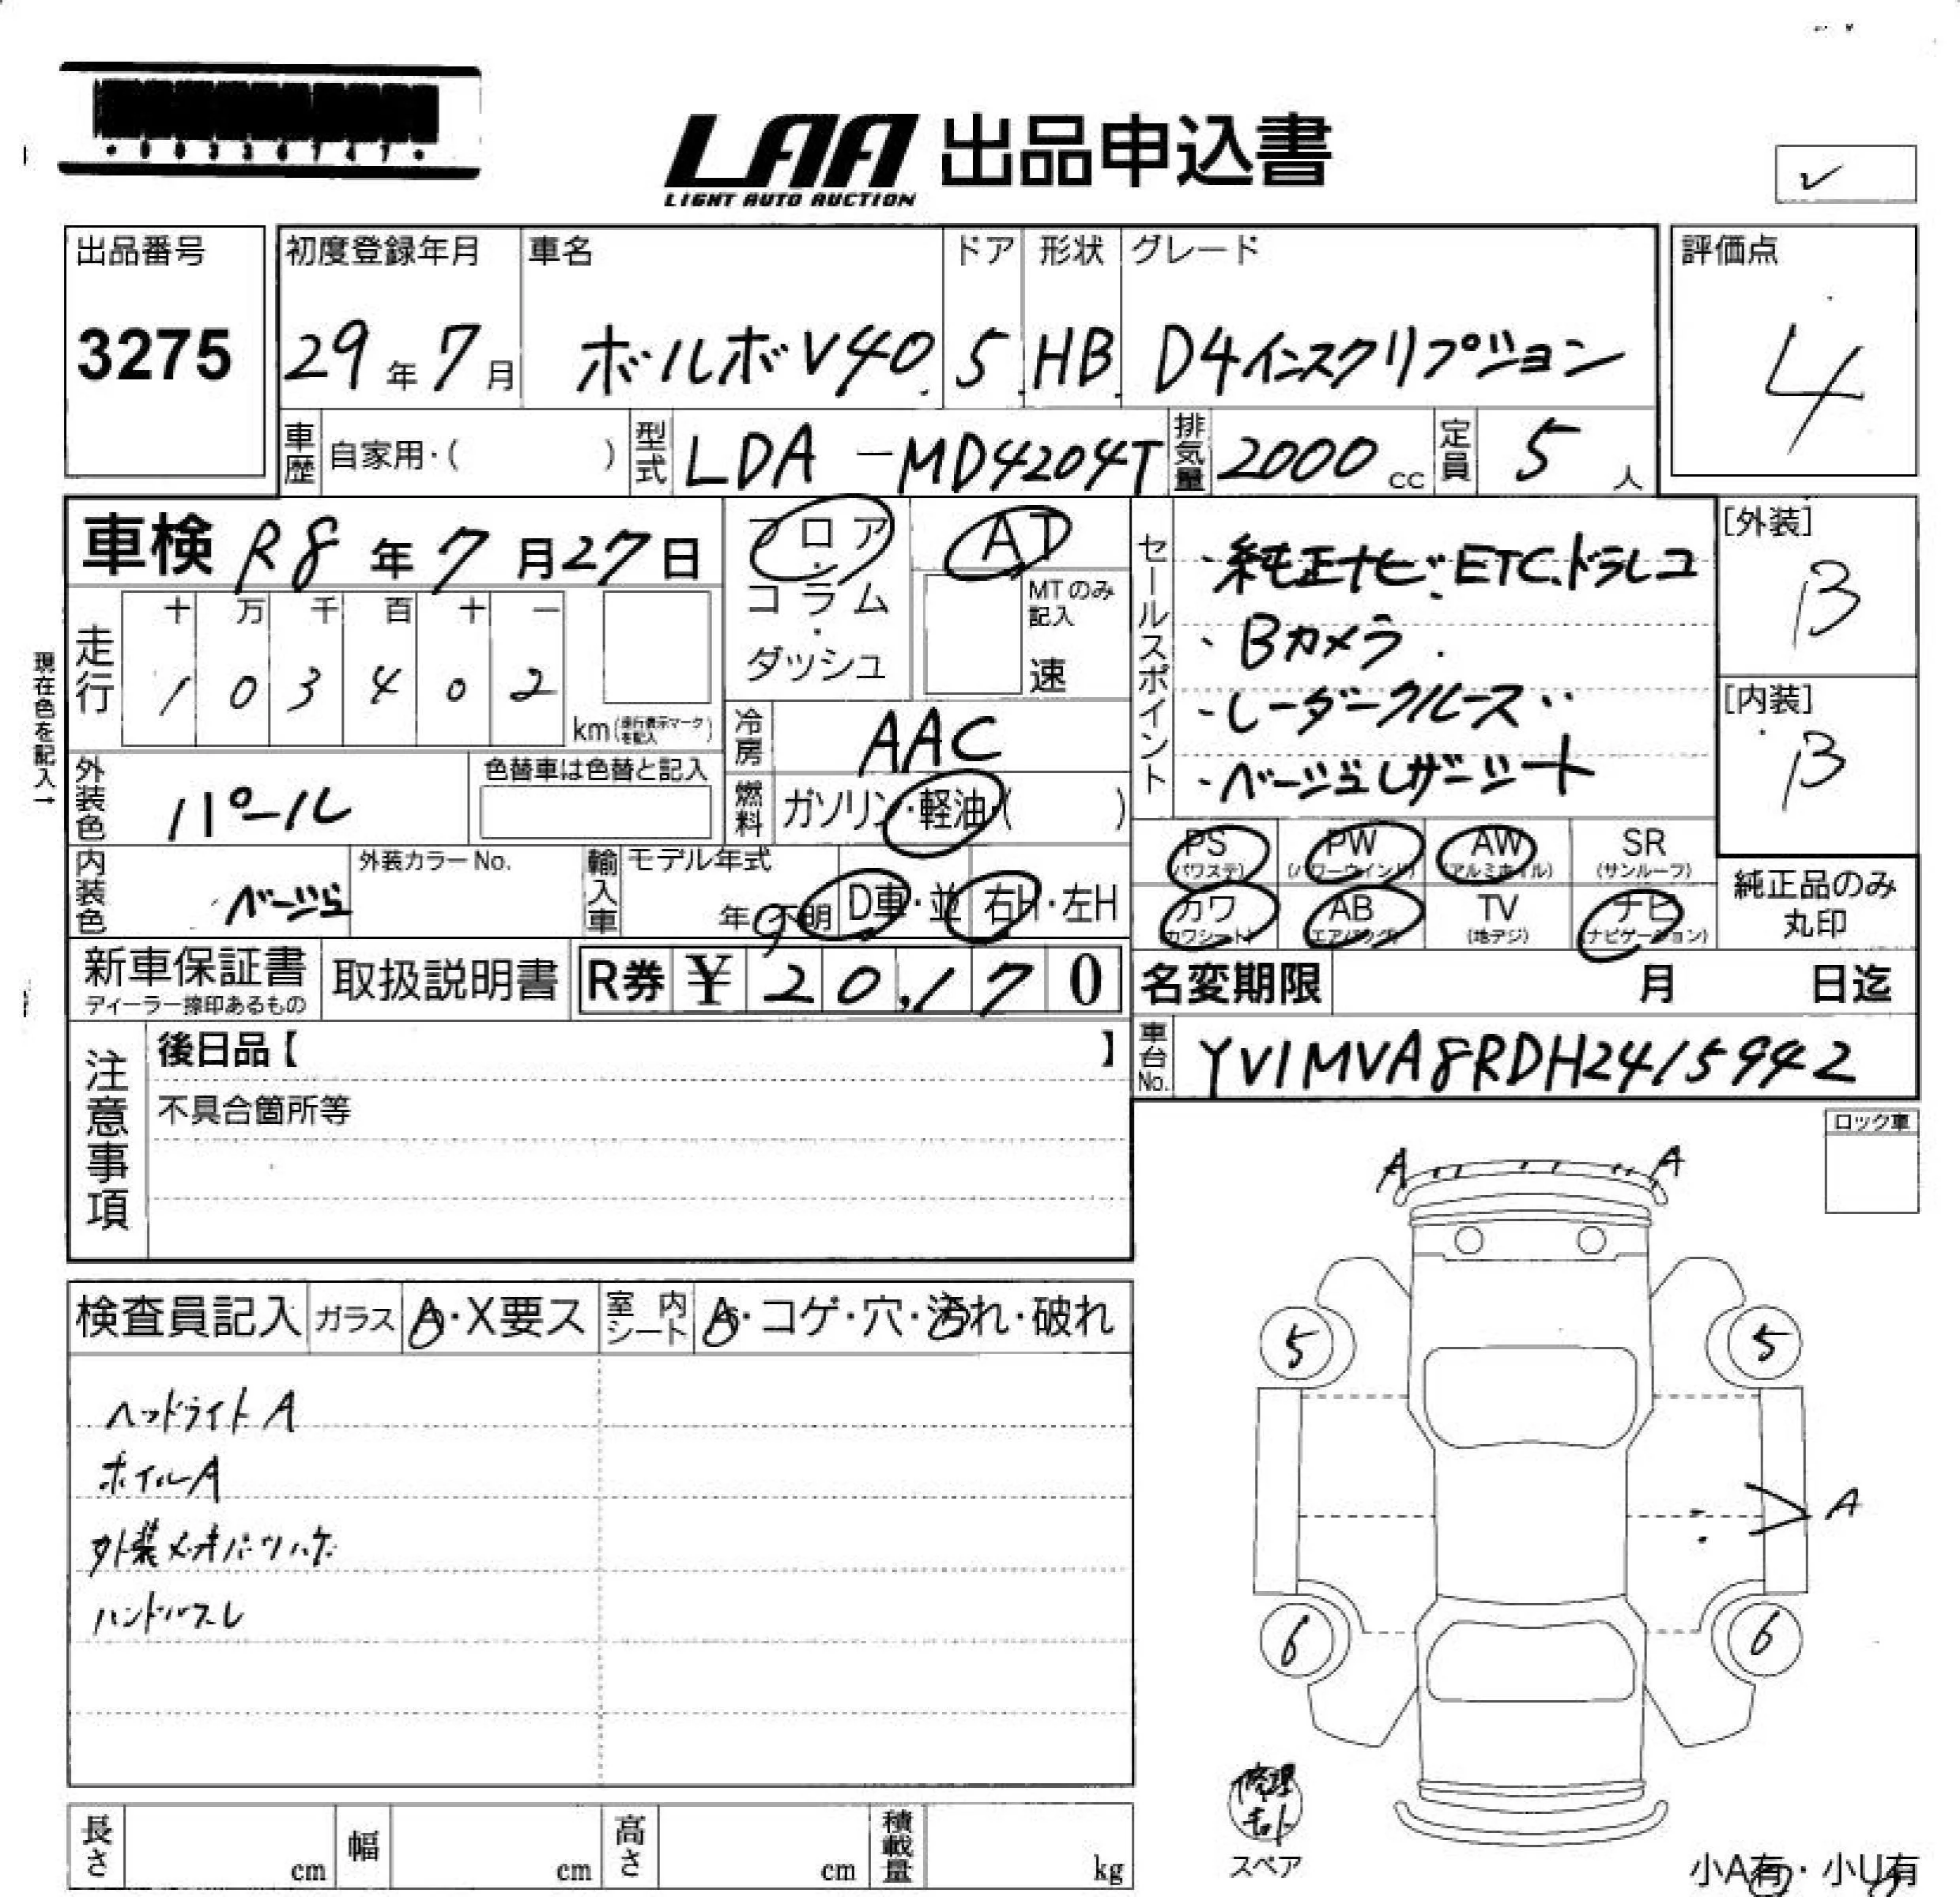 ・00336747・
LAA 出品申込書
LIGHT AUTO AUCTION
レ
出品番号
3275
初度登録年月
29年7月
車名
ボルボV40
ドア
5
形状
HB
グレード
D4インスクリプション
評価点
4
車歴 自家用・( )
型式 LDA-MD4204T
排気量 2000cc
定員 5人
車検 R8年7月27日
フロア・コラム・ダッシュ
AT
MTのみ記入
速
セールスポイント
・純正ナビ・ETC.ドラレコ
・Bカメラ
・レーダークルーズ
・ベージュレザーシート
[外装]
B
[内装]
B
現在色を記入→
走行
十 万 千 百 十 一
1 0 3 4 0 2
km(走行表示マークを記入)
冷房 AAC
外装色 パール
色替車は色替と記入
燃料 ガソリン・軽油・( )
内装色 ベージュ
外装カラーNo.
輸入車 モデル年式
年・不明
D車・並
右H・左H
PS (パワステ)
PW (パワーウインド)
AW (アルミホイル)
SR (サンルーフ)
カワ (カワシート)
AB (エアバッグ)
TV (地デジ)
ナビ (ナビゲーション)
純正品のみ丸印
新車保証書
ディーラー捺印あるもの
取扱説明書
R券 ¥ 20,170
名変期限 月 日迄
車台No. YV1MVA8RDH2415942
注意事項
後日品【 】
不具合箇所等
ロック車
A A
検査員記入
ガラス A・X要ス
室内シート A・コゲ・穴・汚れ・破れ
ヘッドライトA
ホイルA
外装メッキパーツハゲ
ハンドルスレ
5 5
A
6 6
修理キット
スペア
長さ cm
幅 cm
高さ cm
積載量 kg
小A有・小U有